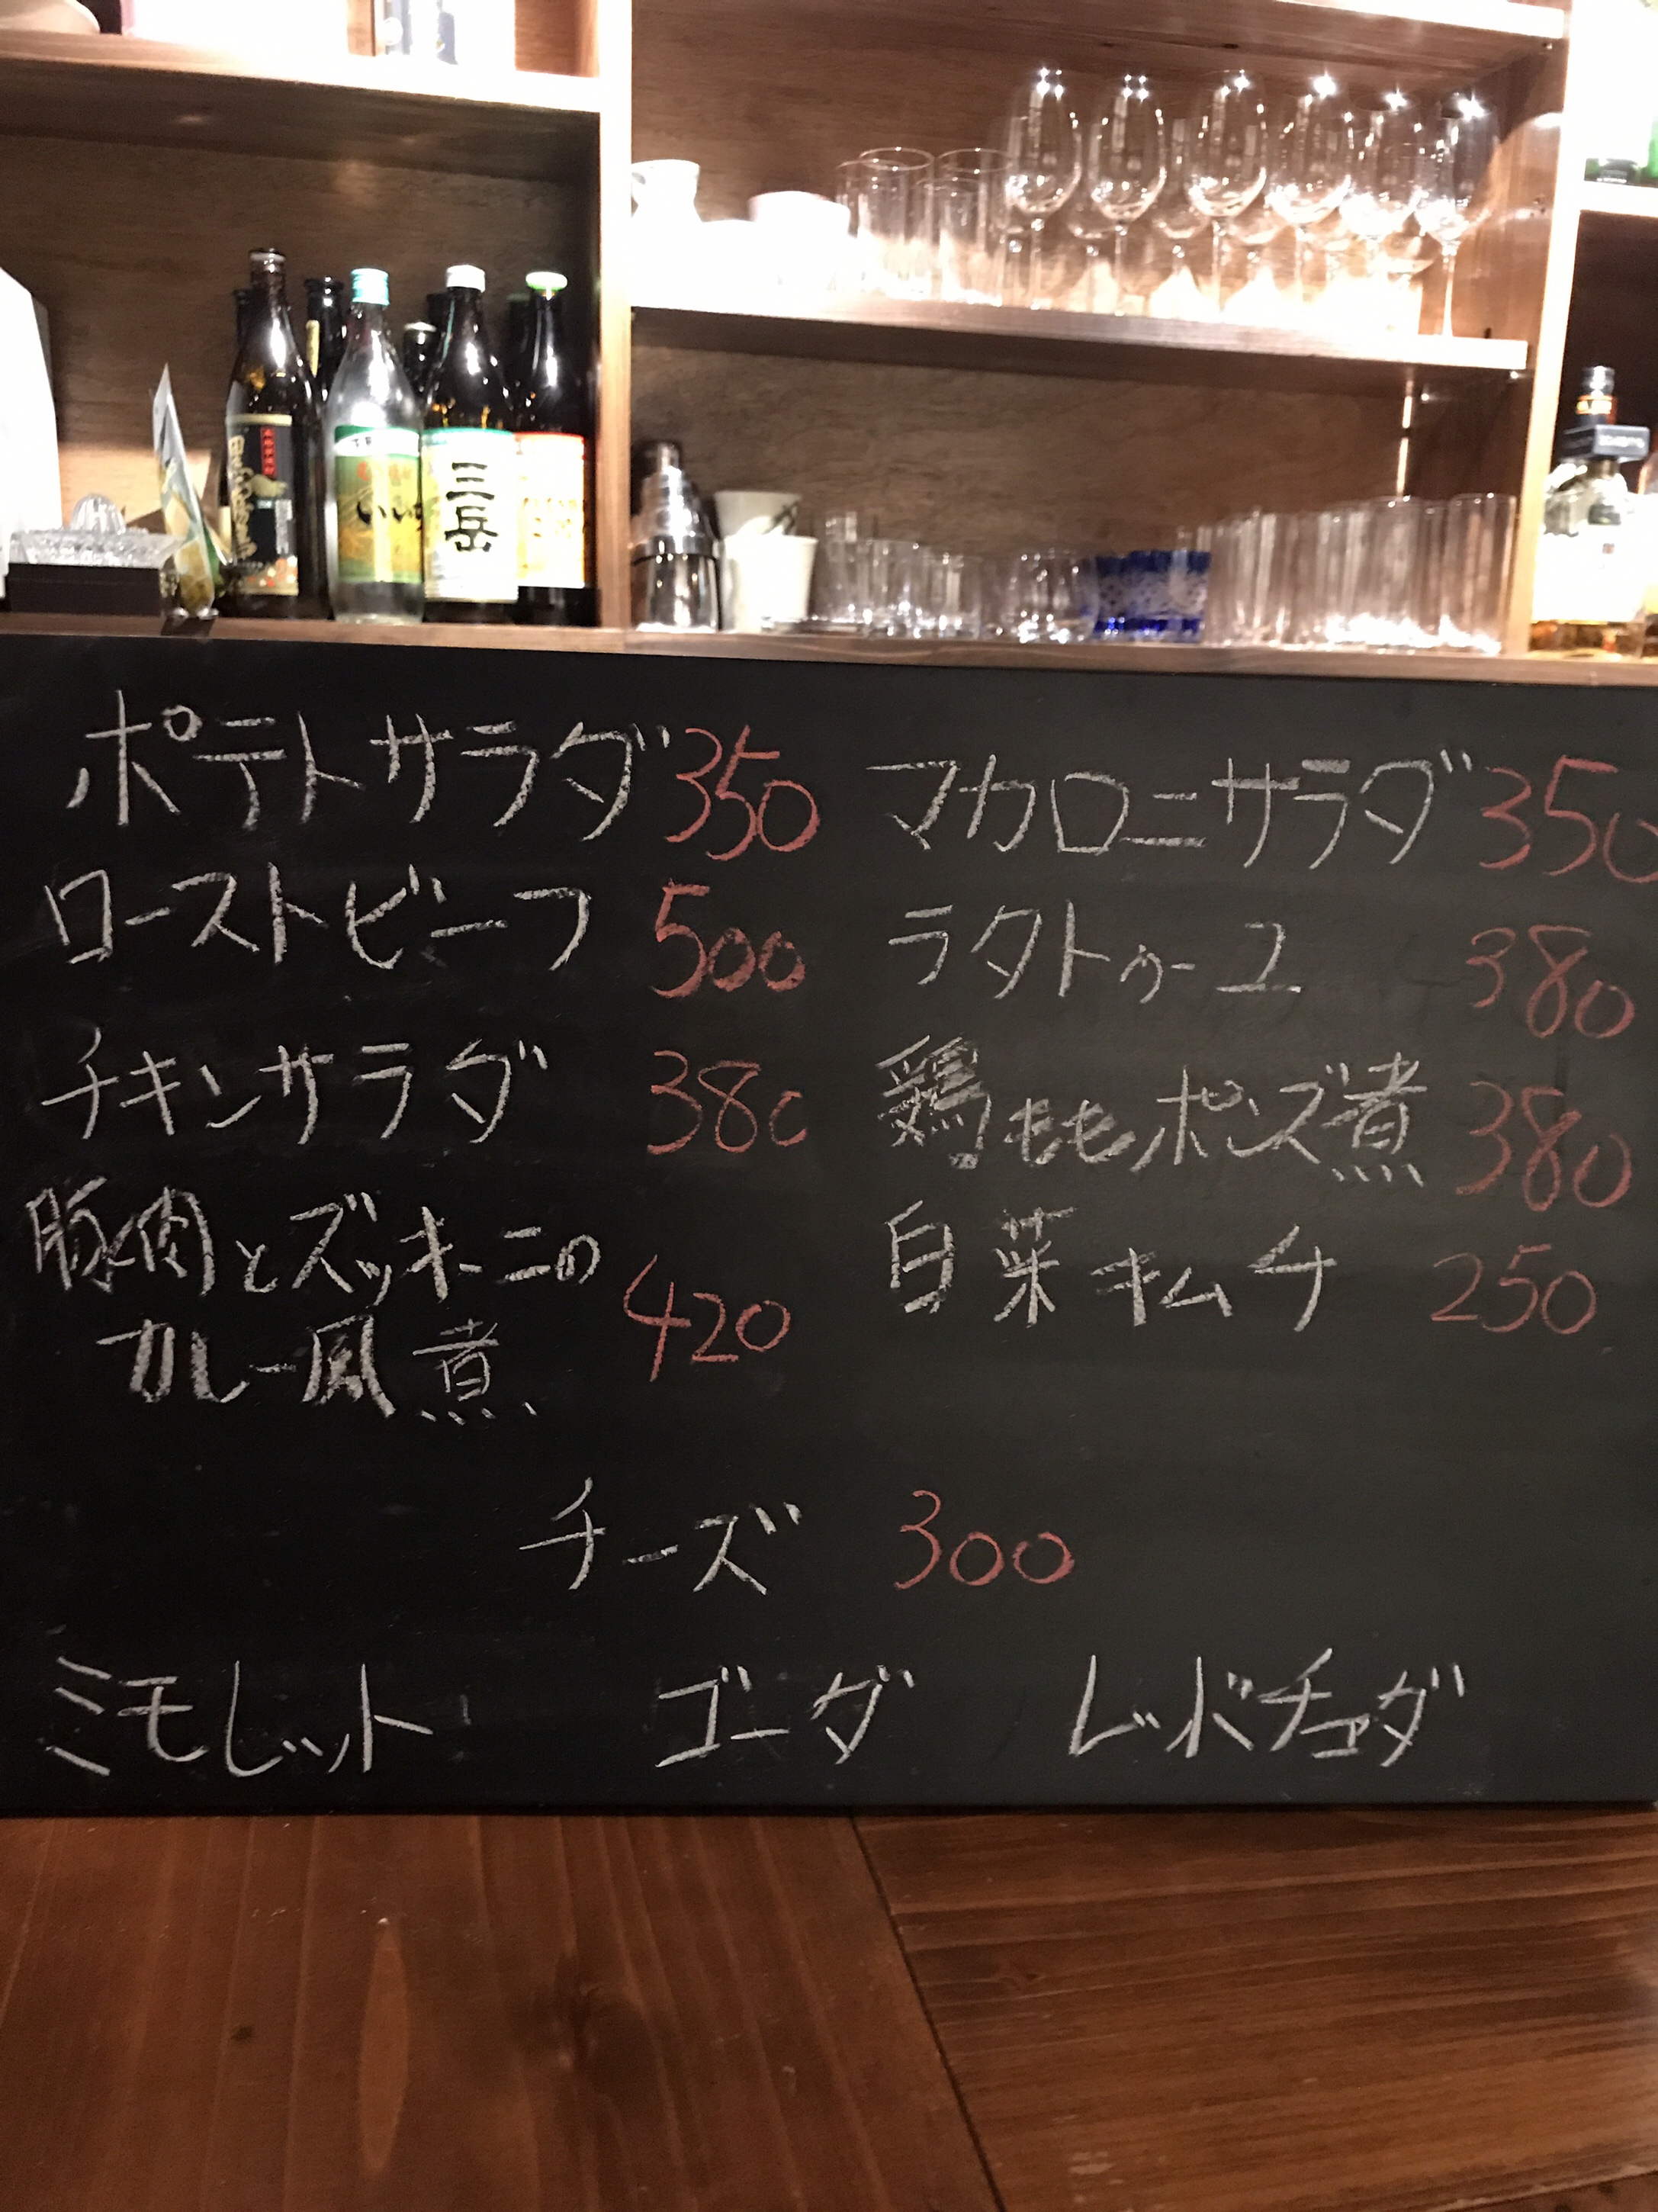 三岳
いいち
ポテトサラダ 350
マカロニサラダ 350
ローストビーフ 500
ラタトゥーユ 380
チキンサラダ 380
鶏ももポンズ煮 380
豚肉とズッキーニの
カレー風煮 420
白菜キムチ 250
チーズ 300
ミモレット ゴーダ レッドチェダ